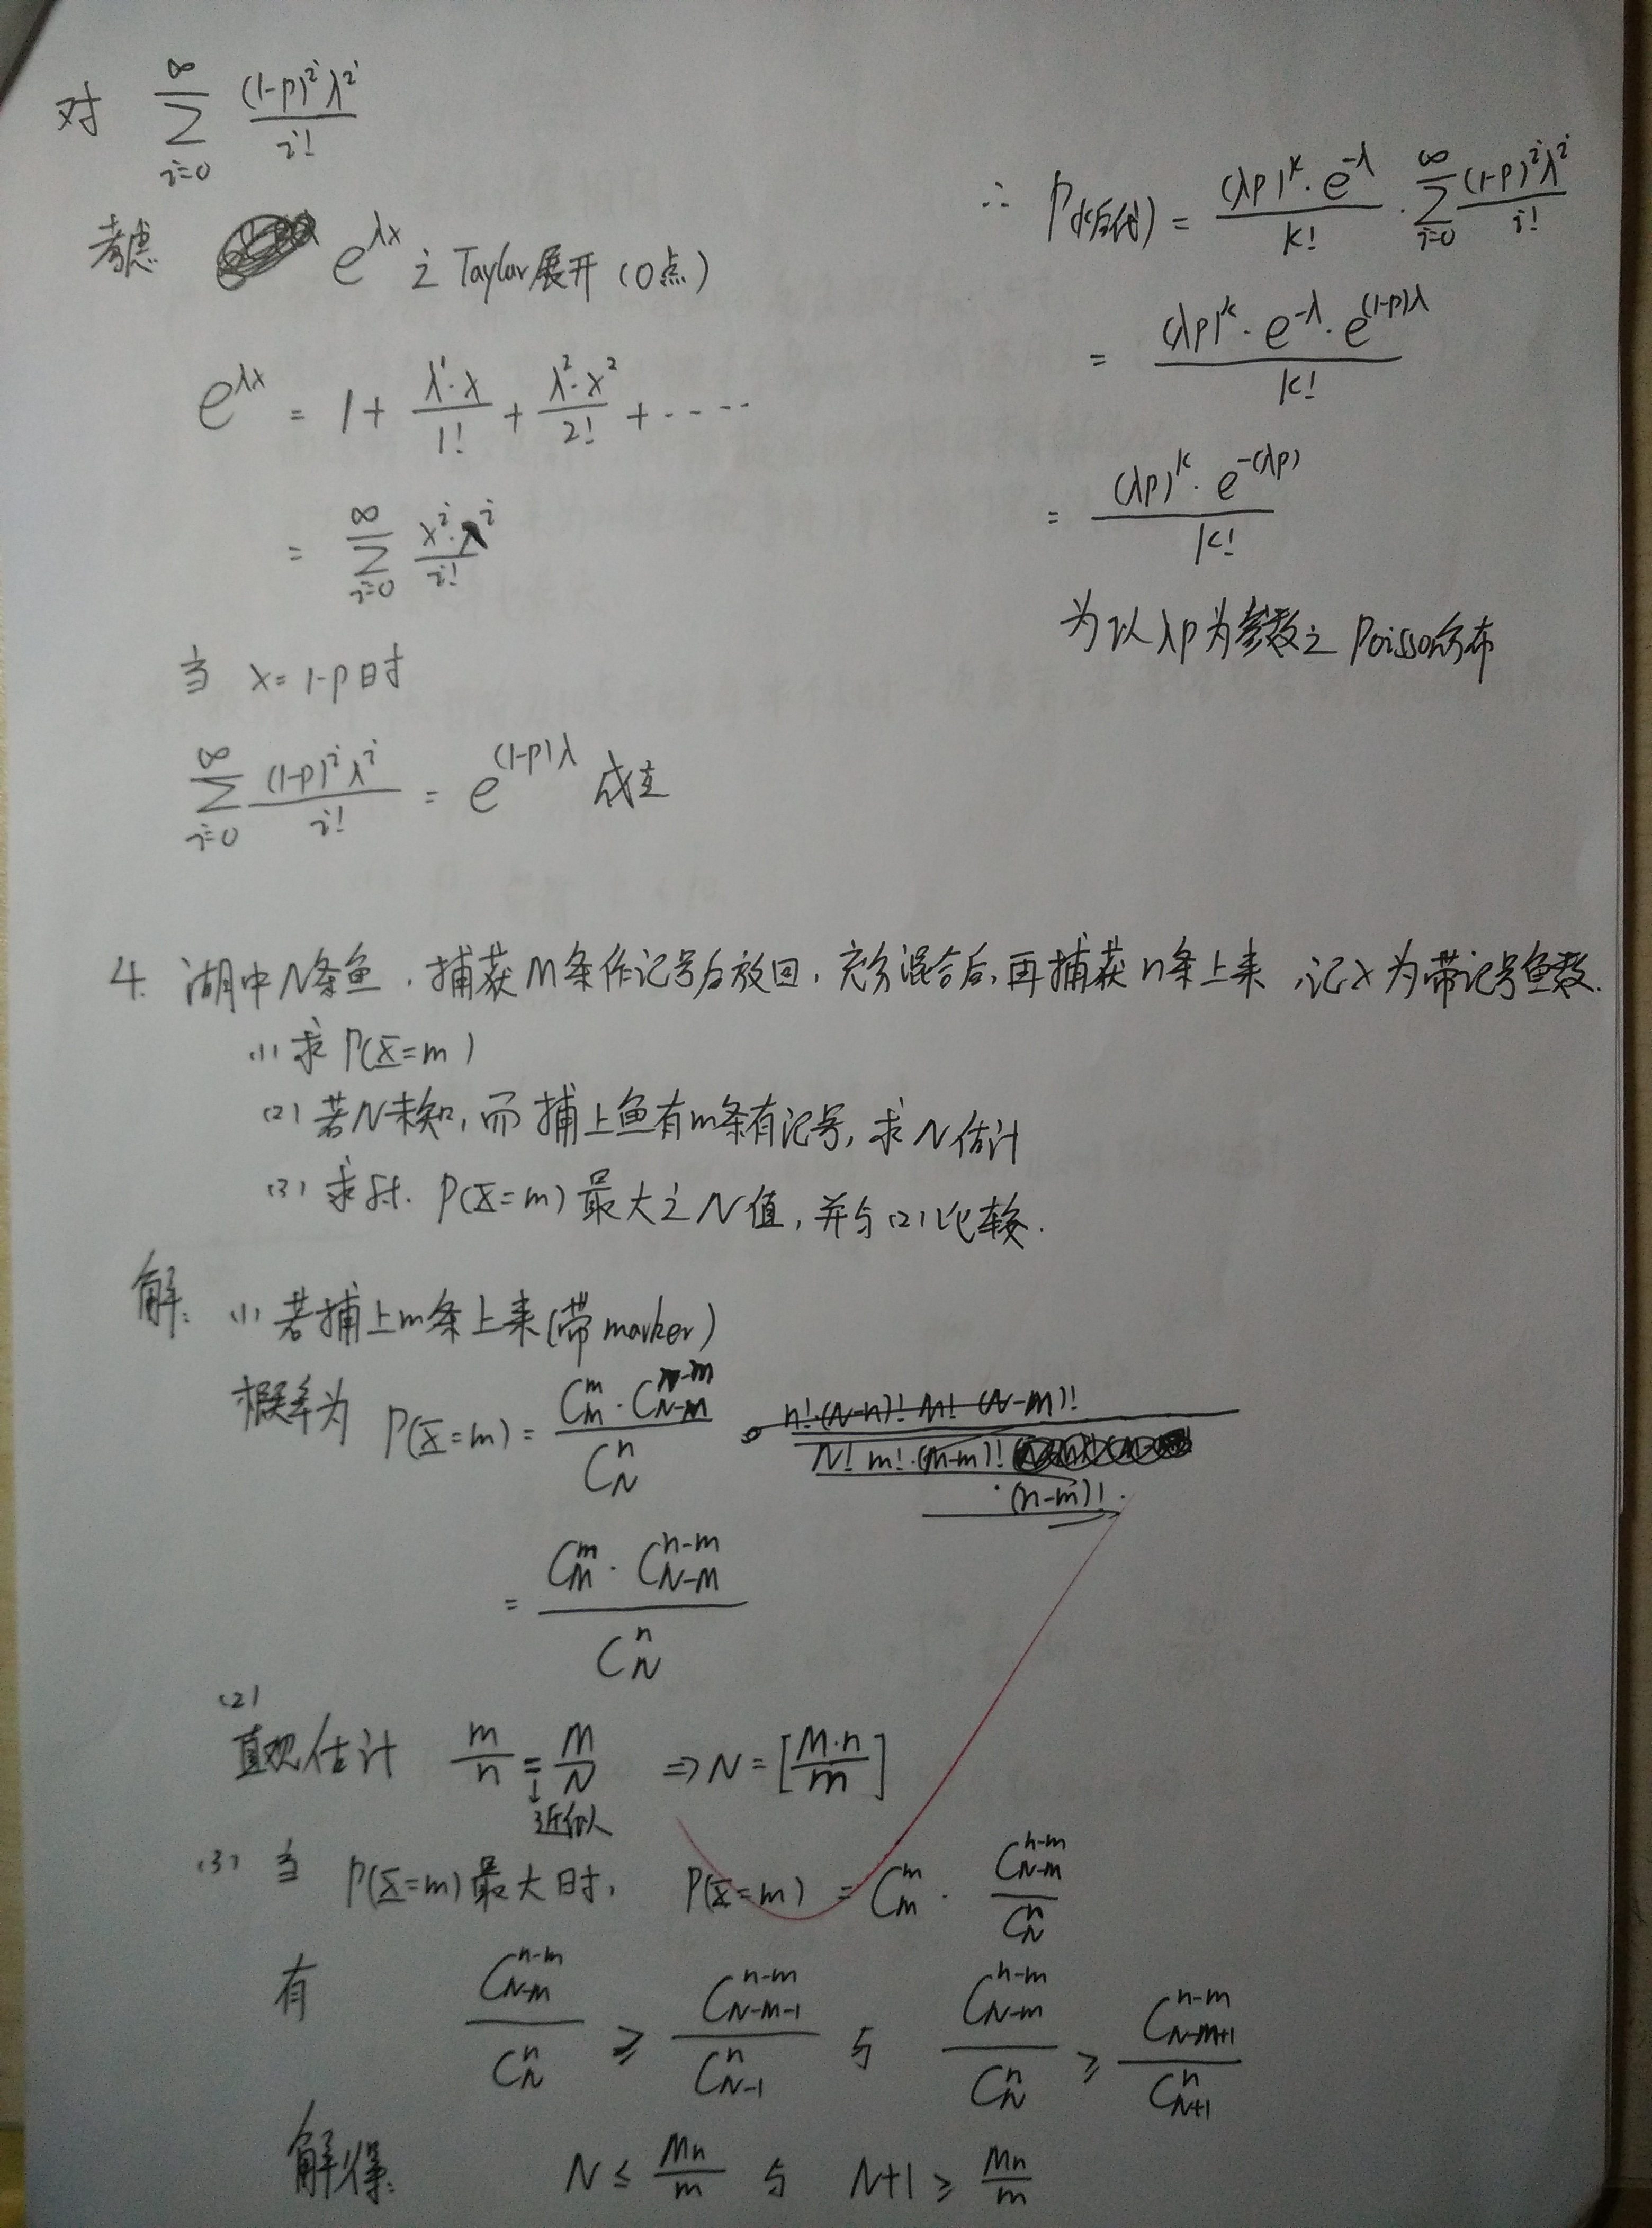 对 ∑_{i=0}^{∞} (1-p)^i λ^i / i!
考虑 e^{λx} 之 Taylor展开 (0点)
e^{λx} = 1 + λ^1·x / 1! + λ^2·x^2 / 2! + ----
= ∑_{i=0}^{∞} x^i·λ^i / i!
当 x = 1-p 时
∑_{i=0}^{∞} (1-p)^i λ^i / i! = e^{(1-p)λ} 成立
∴ P(k后代) = (λp)^k · e^{-λ} / k! · ∑_{i=0}^{∞} (1-p)^i λ^i / i!
= (λp)^k · e^{-λ} · e^{(1-p)λ} / k!
= (λp)^k · e^{-(λp)} / k!
为以 λp 为参数之 Poisson分布
4. 湖中N条鱼，捕获M条作记号后放回，充分混合后，再捕获n条上来，记X为带记号鱼数.
(1) 求 P(X=m)
(2) 若N未知，而捕上鱼有m条有记号，求N估计
(3) 求 P(X=m) 最大之N值，并与(2)比较.
解: (1) 若捕上m条上来(带marker)
概率为 P(X=m) = C_M^m · C_{N-M}^{n-m} / C_N^n
= C_M^m · C_{N-M}^{n-m} / C_N^n
(2)
直观估计 m/n = M/N ⇒ N = [M·n / m]
↓
近似
(3) 当 P(X=m) 最大时, P(X=m) = C_M^m · C_{N-M}^{n-m} / C_N^n
有 C_{N-M}^{n-m} / C_N^n ≥ C_{N-M-1}^{n-m} / C_{N-1}^n 与 C_{N-M}^{n-m} / C_N^n ≥ C_{N-M+1}^{n-m} / C_{N+1}^n
解得: N ≤ Mn/m 与 N+1 ≥ Mn/m